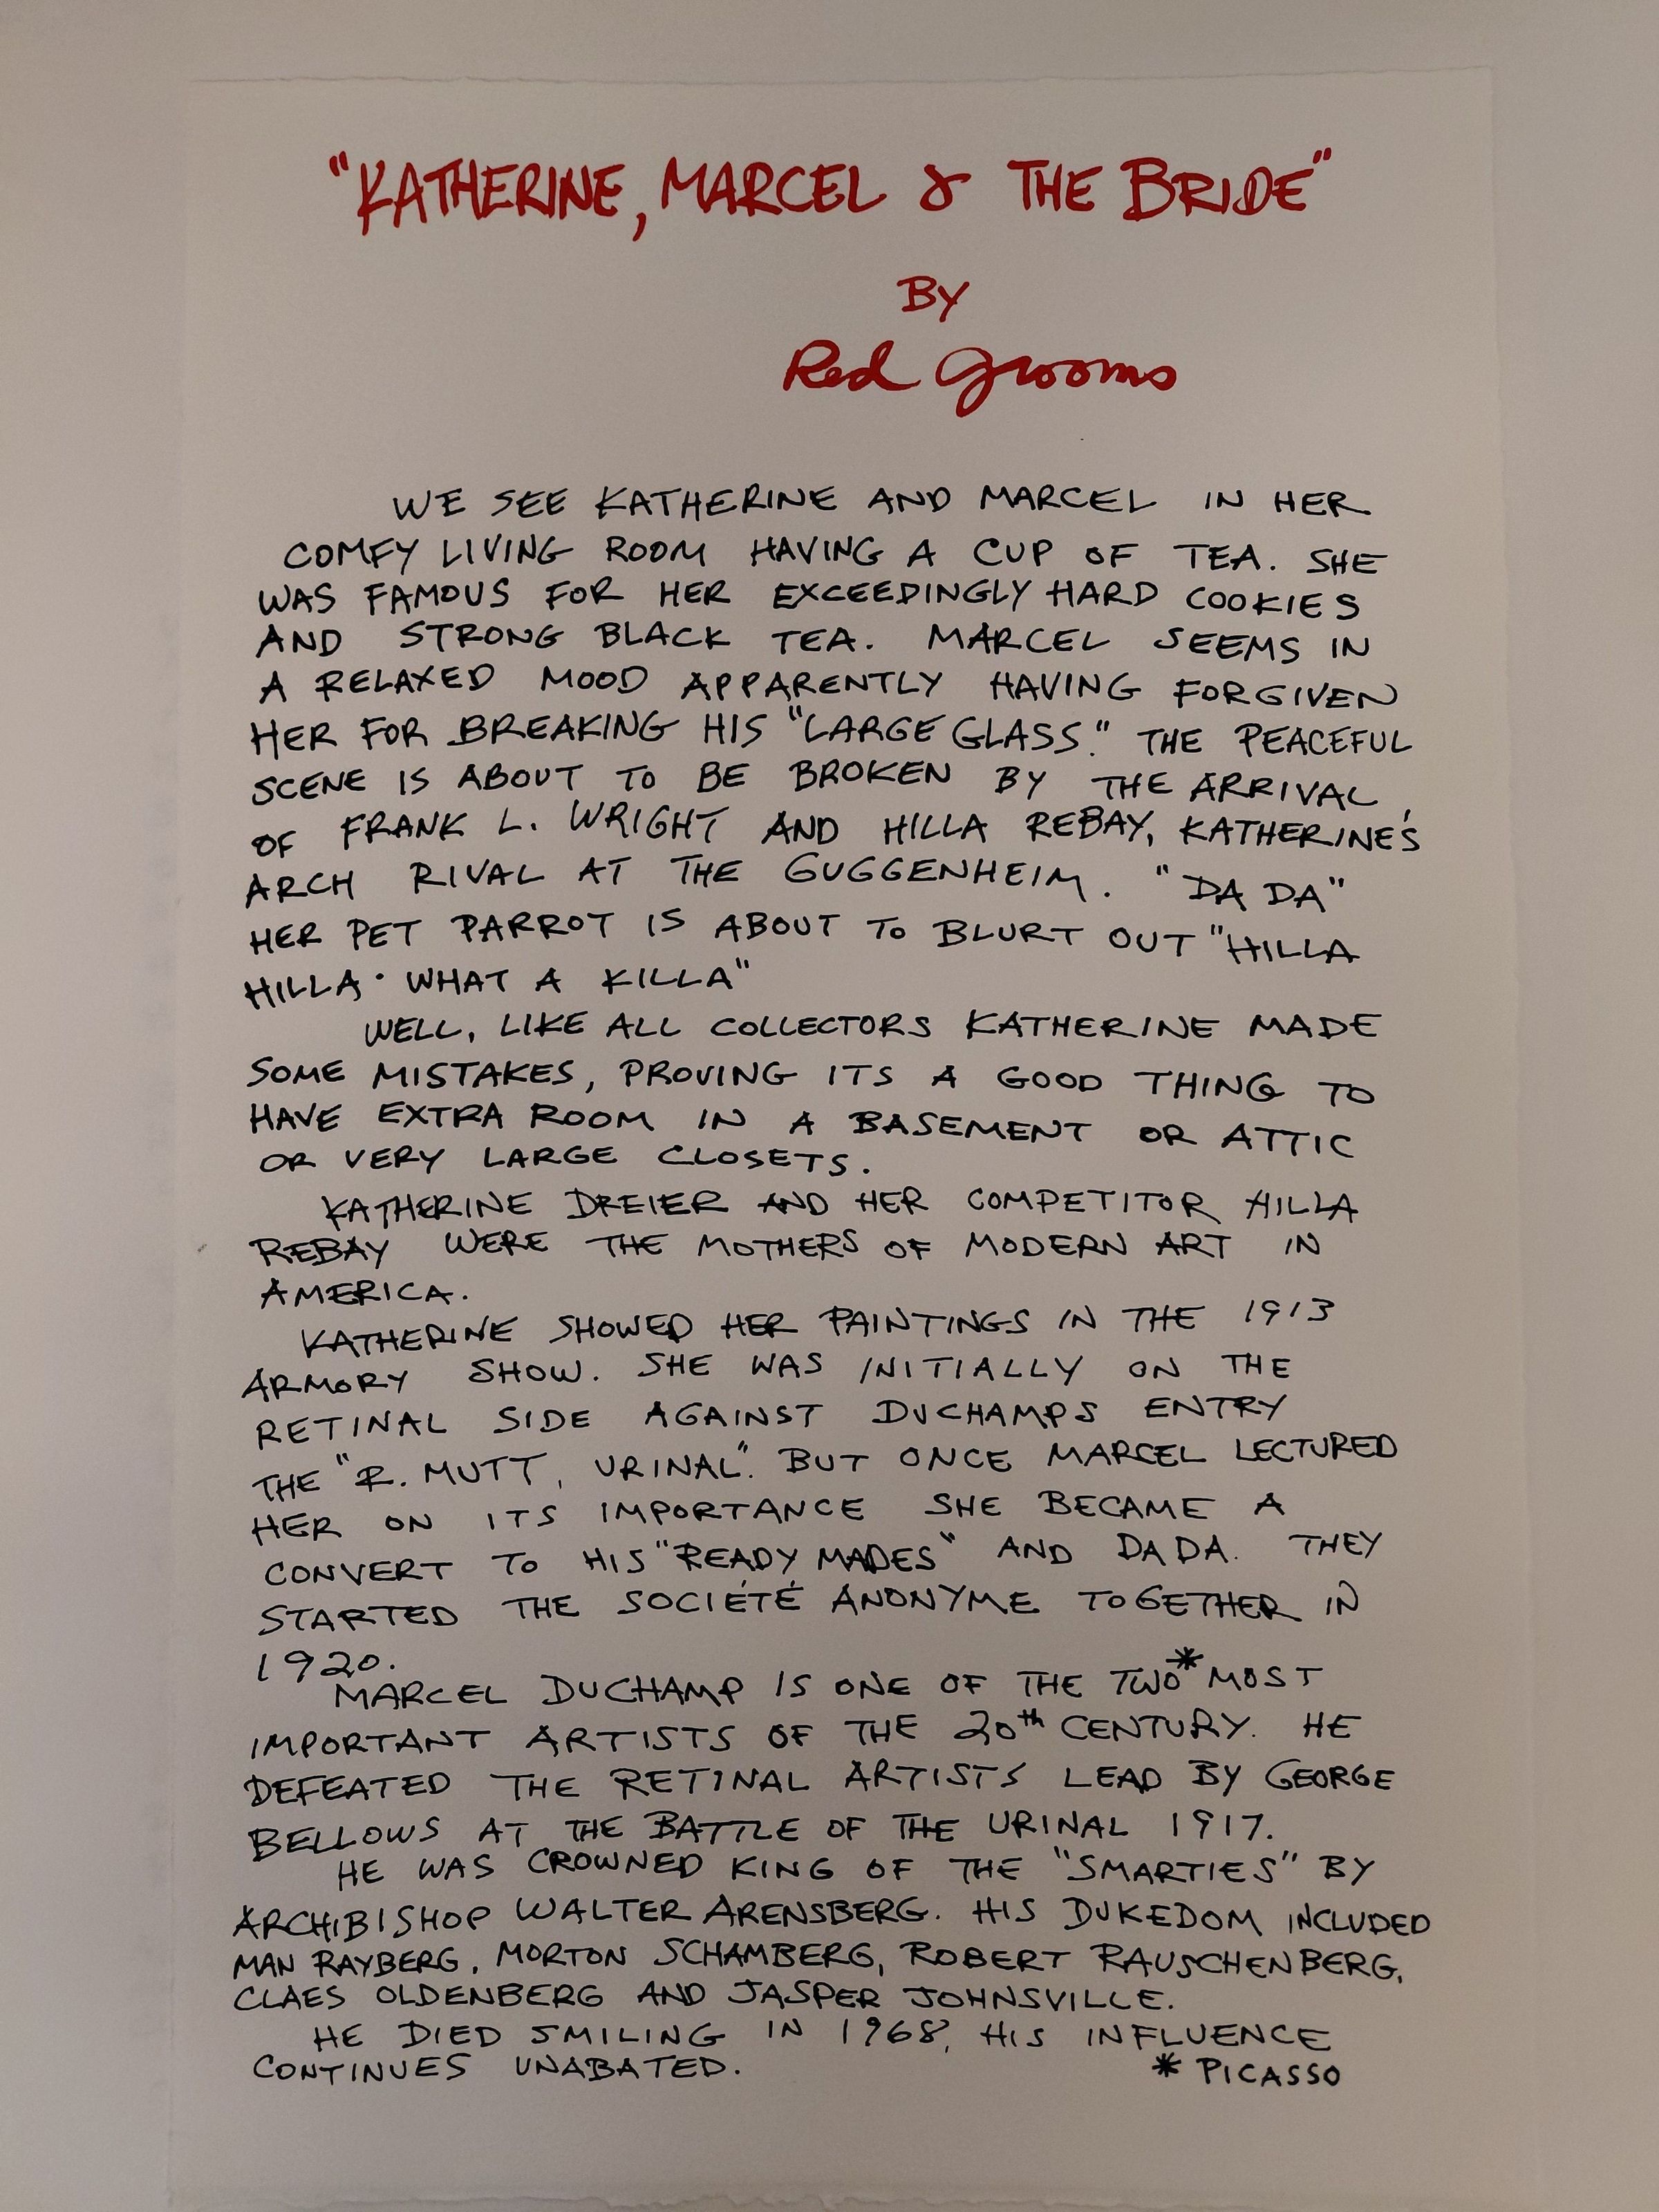 "KATHERINE, MARCEL & THE BRIDE"
BY
Red Grooms
WE SEE KATHERINE AND MARCEL IN HER
COMFY LIVING ROOM HAVING A CUP OF TEA. SHE
WAS FAMOUS FOR HER EXCEEDINGLY HARD COOKIES
AND STRONG BLACK TEA. MARCEL SEEMS IN
A RELAXED MOOD APPARENTLY HAVING FORGIVEN
HER FOR BREAKING HIS "LARGE GLASS." THE PEACEFUL
SCENE IS ABOUT TO BE BROKEN BY THE ARRIVAL
OF FRANK L. WRIGHT AND HILLA REBAY, KATHERINE'S
ARCH RIVAL AT THE GUGGENHEIM. "DA DA"
HER PET PARROT IS ABOUT TO BLURT OUT "HILLA
HILLA · WHAT A KILLA"
WELL, LIKE ALL COLLECTORS KATHERINE MADE
SOME MISTAKES, PROVING ITS A GOOD THING TO
HAVE EXTRA ROOM IN A BASEMENT OR ATTIC
OR VERY LARGE CLOSETS.
KATHERINE DREIER AND HER COMPETITOR HILLA
REBAY WERE THE MOTHERS OF MODERN ART IN
AMERICA.
KATHERINE SHOWED HER PAINTINGS IN THE 1913
ARMORY SHOW. SHE WAS INITIALLY ON THE
RETINAL SIDE AGAINST DUCHAMPS ENTRY
THE "R. MUTT, URINAL". BUT ONCE MARCEL LECTURED
HER ON ITS IMPORTANCE SHE BECAME A
CONVERT TO HIS "READY MADES" AND DADA. THEY
STARTED THE SOCIÉTÉ ANONYME TOGETHER IN
1920.
MARCEL DUCHAMP IS ONE OF THE TWO* MOST
IMPORTANT ARTISTS OF THE 20th CENTURY. HE
DEFEATED THE RETINAL ARTISTS LEAD BY GEORGE
BELLOWS AT THE BATTLE OF THE URINAL 1917.
HE WAS CROWNED KING OF THE "SMARTIES" BY
ARCHIBISHOP WALTER ARENSBERG. HIS DUKEDOM INCLUDED
MAN RAYBERG, MORTON SCHAMBERG, ROBERT RAUSCHENBERG,
CLAES OLDENBERG AND JASPER JOHNSVILLE.
HE DIED SMILING IN 1968, HIS INFLUENCE
CONTINUES UNABATED. * PICASSO